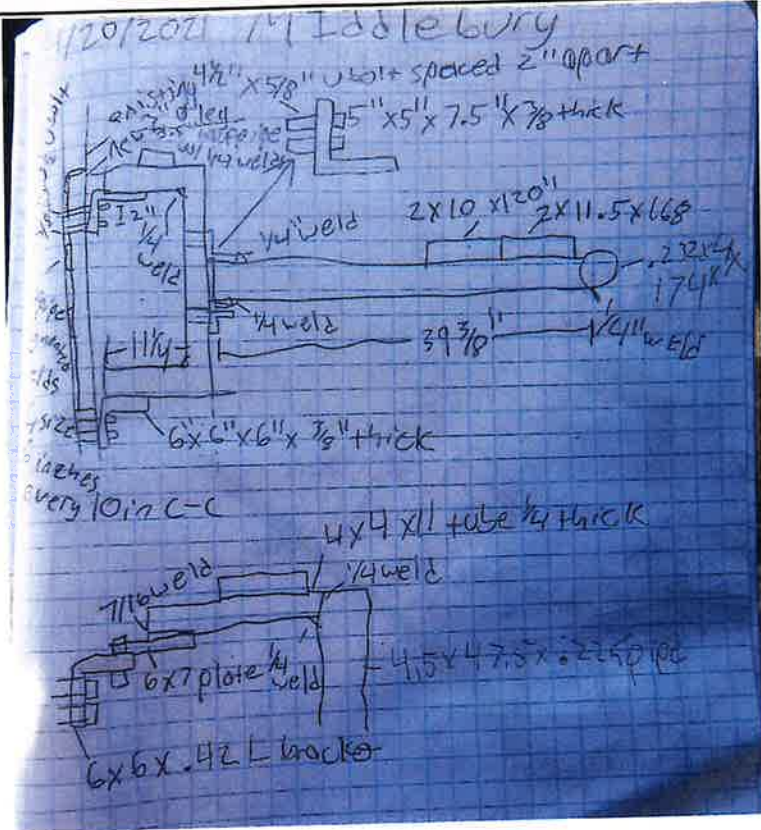 1/20/2021 Middlebury
4½" x 5/8" ubolt spaced 2" apart
existing
leg
5" x 5" x 7.5" x 3/8 thick
w/ 1/4 welds
12"
1/4
weld
1/4" weld
2x10 x120"
2x11.5x168
.232x4x
174"
1/4 weld
11 1/4
39 3/8"
1/4" weld
6"x6"x6"x 3/8" thick
inches
every 10in C-C
4x4x11 tube 1/4 thick
7/16 weld
1/4 weld
6x7 plate 1/4
weld
4.5x47.5x.225 pipe
6x6x.42 L bracket